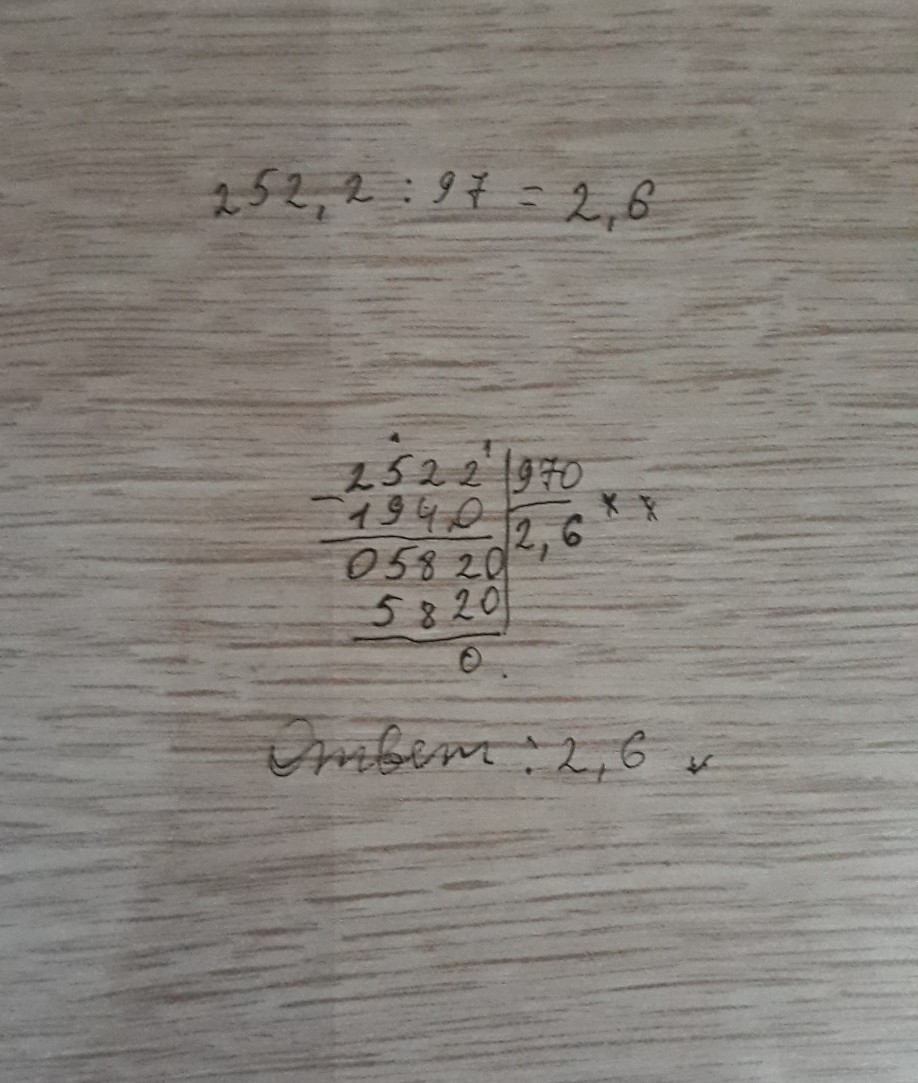 252,2 : 97 = 2,6
2522 970
- 1940 2,6 * *
05820
5820
0
Ответ: 2,6